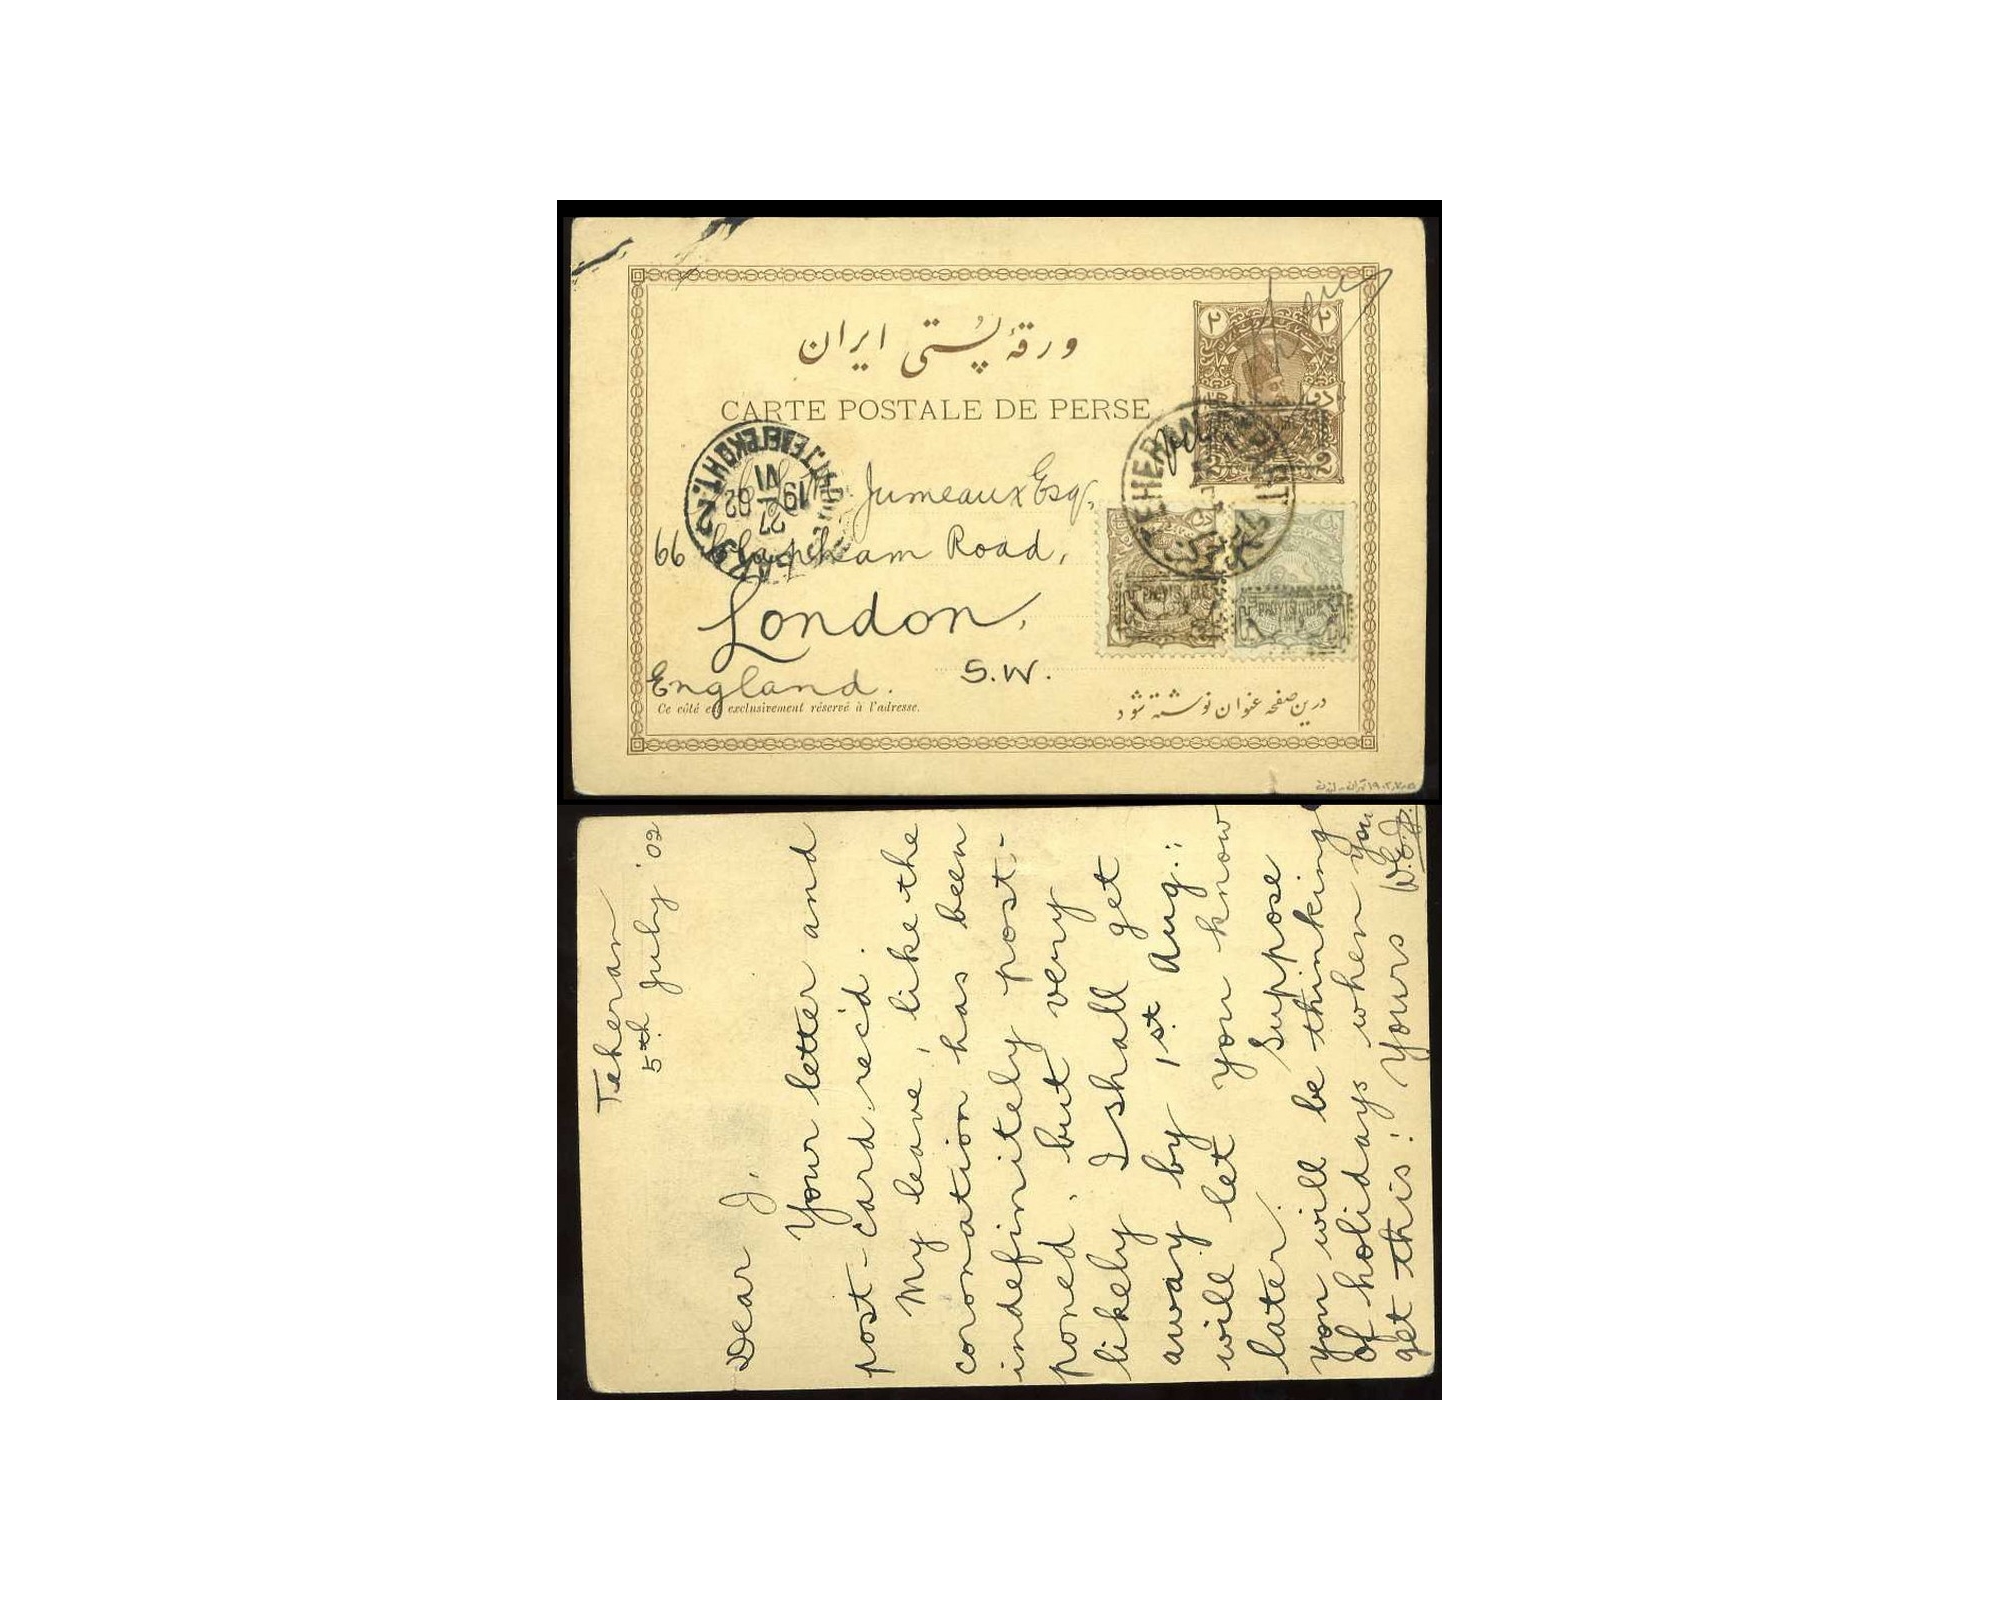 ورقهٔ پُستی ایران
CARTE POSTALE DE PERSE
۲ ۲
TEHERAN DÉPART
27
VI
19 02
Jumeaux Esq,
66 Clapham Road,
London,
S.W.
England.
PROVISOIRE
PROVISOIRE
Ce côté est exclusivement réservé à l'adresse.
درین صفحه عنوان نوشته شود
Teheran
5th July '02
Dear J,
Your letter and
post-card rec'd.
My leave, like the
coronation has been
indefinitely post-
poned, but very
likely I shall get
away by 1st Aug.:
will let you know
later. Suppose
you will be thinking
of holidays when you
get this! Yours W.E.J.